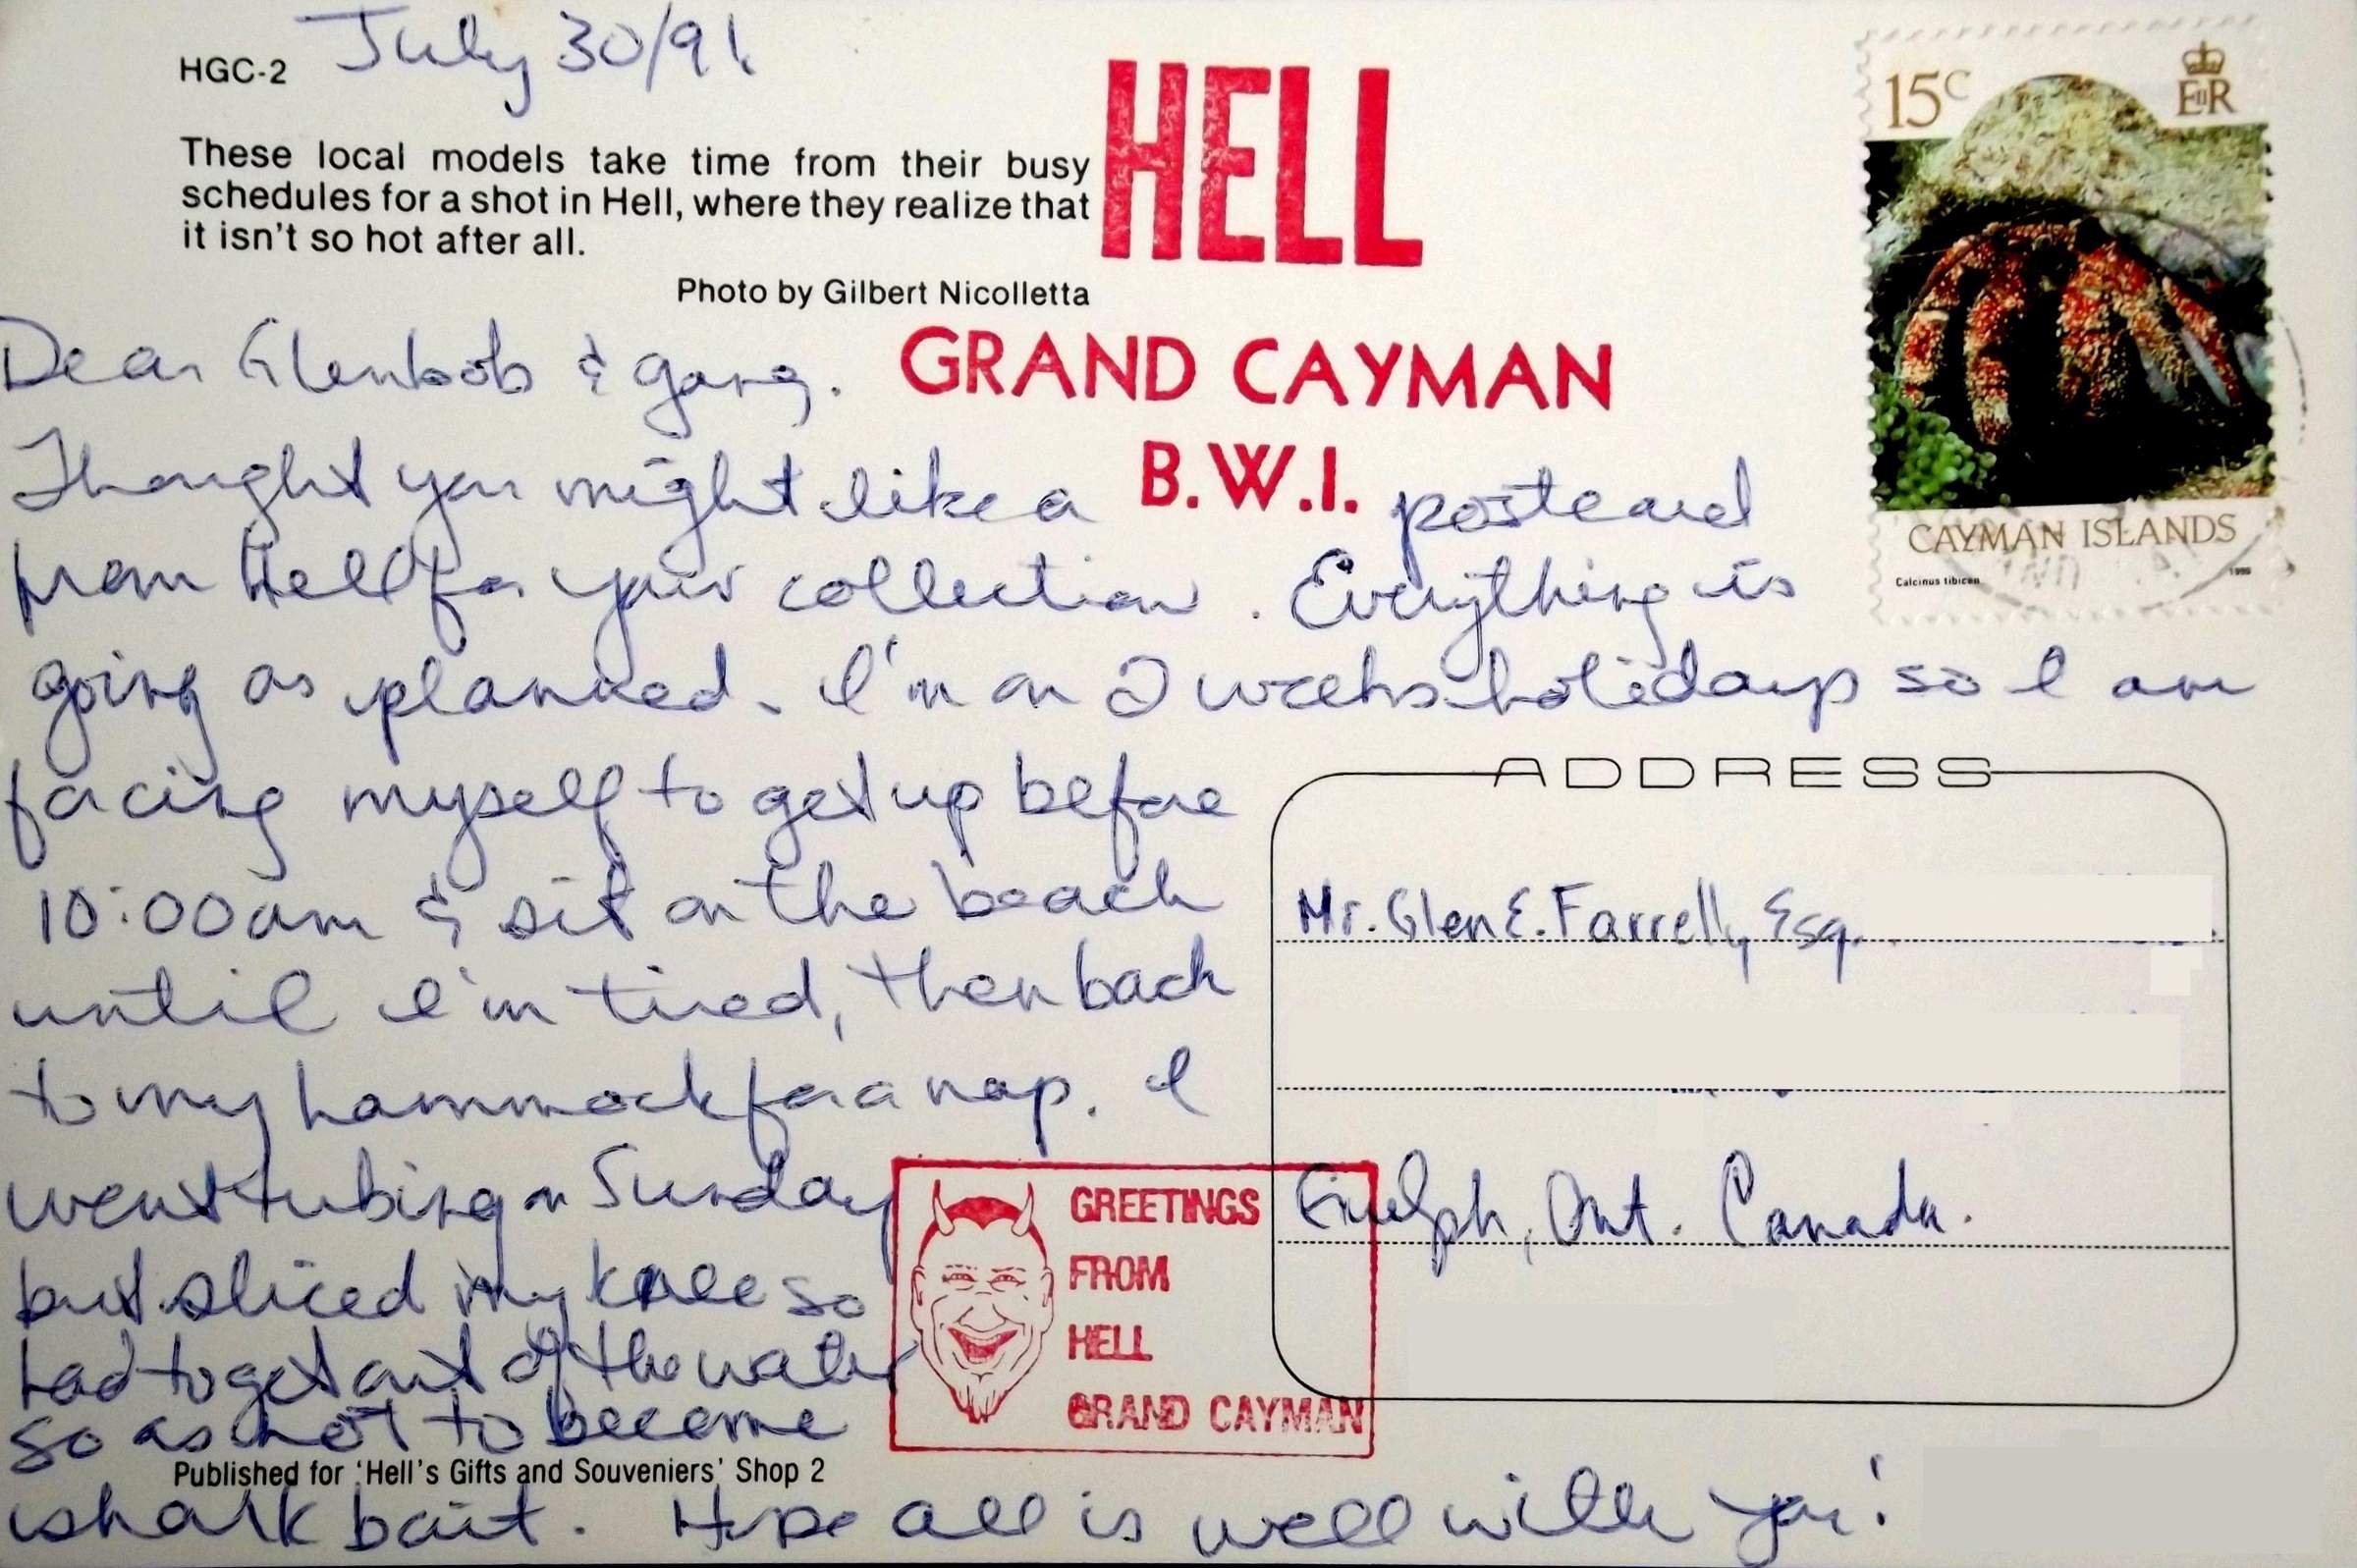 HGC-2 July 30/91
HELL
15c
EIIR
These local models take time from their busy
schedules for a shot in Hell, where they realize that
it isn't so hot after all.
Photo by Gilbert Nicolletta
GRAND CAYMAN
B.W.I.
CAYMAN ISLANDS
Calcinus tibicen
Dear Glenbob & gang.
Thought you might like a postcard
from Hell for your collection. Everything is
going as planned. I'm on 2 weeks holidays so I am
facing myself to get up before
10:00am & sit on the beach
until I'm tired, then back
to my hammock for a nap. I
went tubing on Sunday
but sliced my knee so
had to get out of the water
so as not to become
shark bait. Hope all is well with you!
ADDRESS
Mr. Glen E. Farrell, Esq.
Guelph, Ont. Canada.
GREETINGS
FROM
HELL
GRAND CAYMAN
Published for 'Hell's Gifts and Souveniers' Shop 2